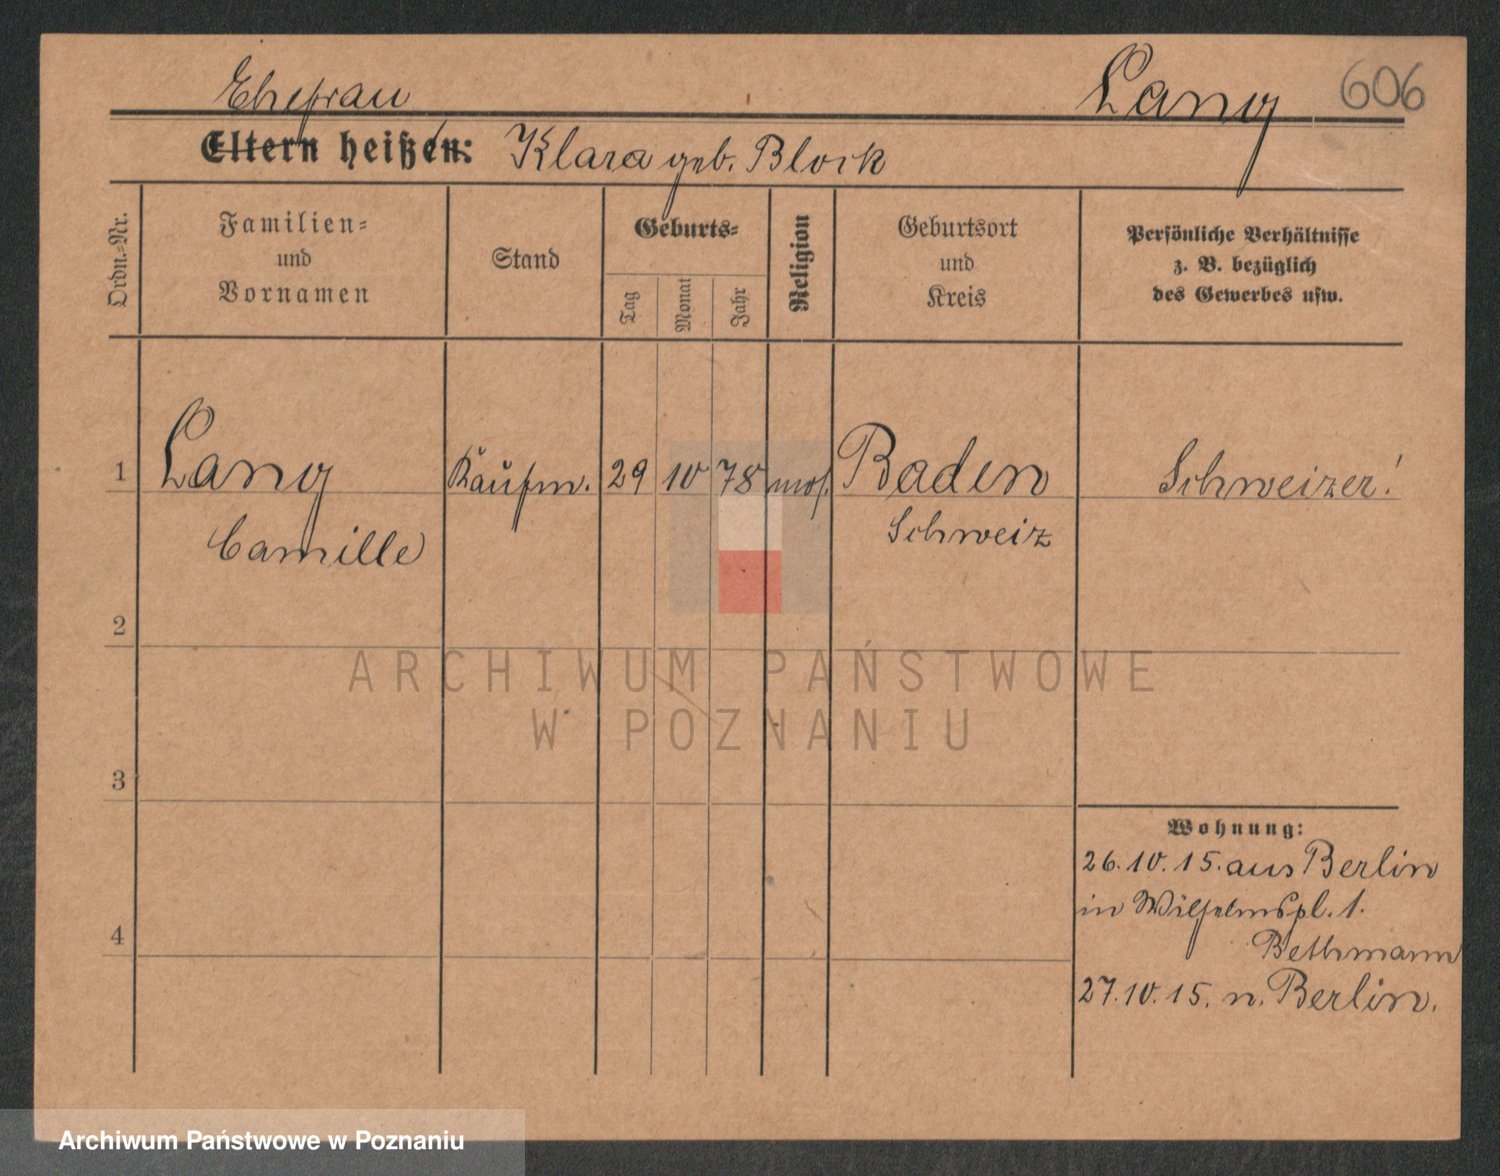 Ehefrau Lang 606
Eltern heißen: Klara geb. Block
Ordn.-Nr.
Familien-
und
Vornamen
Stand
Geburts-
Tag
Monat
Jahr
Religion
Geburtsort
und
Kreis
Persönliche Verhältnisse
z. B. bezüglich
des Gewerbes usw.
1 Lang Kaufm. 29 10 78 mos. Baden Schweizer!
Camille Schweiz
2
ARCHIWUM PAŃSTWOWE
W POZNANIU
3
Wohnung:
26.10.15. aus Berlin
in Wilhelmspl. 1.
4
Bethmann
27.10.15. n. Berlin.
Archiwum Państwowe w Poznaniu